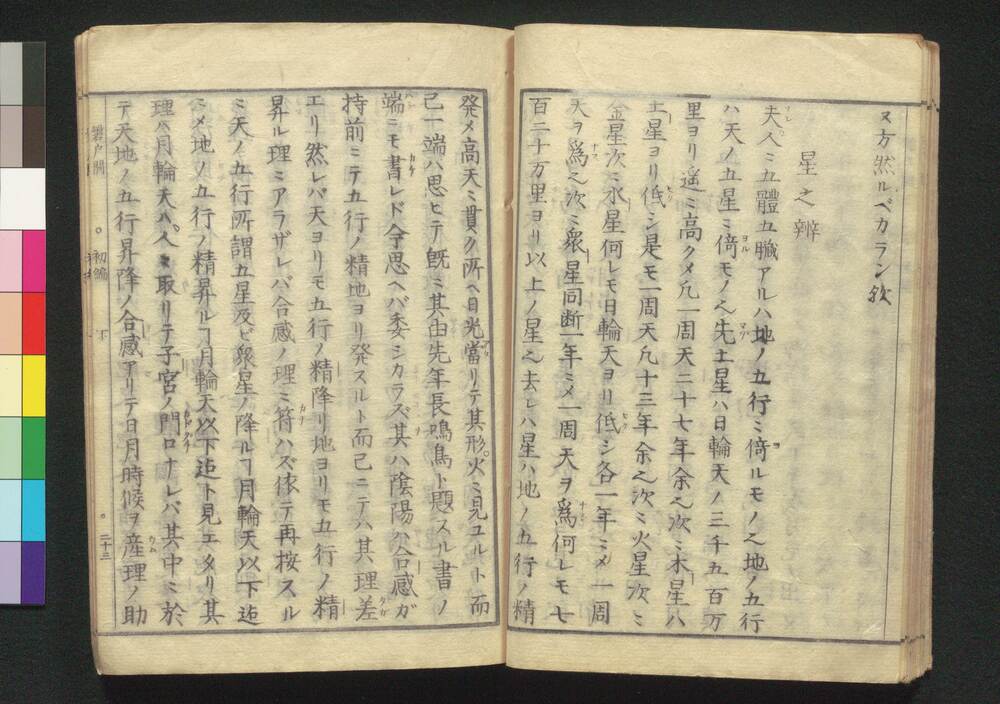 又方然ルベカラン歟
星之辨
夫人ニ五體五臓アルハ地ノ五行ニ倚ルモノ之地ノ五行
ハ天ノ五星ニ倚モノ之先土星ハ日輪天ノ三千五百万
里ヨリ遥ニ高クメ凡一周天二十七年余之次ニ木星ハ
土星ヨリ低シ是モ一周天凡十三年余之次ニ火星次ニ
金星次ニ水星何レモ日輪天ヨリ低シ各一年ニメ一周
天ヲ爲之次ニ衆星同断一年ニメ一周天ヲ爲何レモ七
百二十万里ヨリ以上ノ星之去レハ星ハ地ノ五行ノ精
発メ高天ニ貫ク所ヘ日光當リテ其形火ニ見ユルト而
己一端ハ思ヒテ既ニ其由先年長鳴鳥ト題スル書ノ
端ニモ書レド今思ヘバ委シカラズ其ハ陰陽ハ合感ガ
持前ニテ五行ノ精地ヨリ発スルト而己ニテハ其理差
エリ然レバ天ヨリモ五行ノ精降リ地ヨリモ五行ノ精
昇ル理ニアラザレバ合感ノ理ニ符ハズ依テ再按スル
ニ天ノ五行所謂五星及ビ衆星ノ降ルヿ月輪天以下迠
ニメ地ノ五行ノ精昇ルヿ月輪天以下迠ト見エタリ其
理ハ月輪天ハ人ニ取リテ子宮ノ門口ナレバ其中ニ於
テ天地ノ五行昇降ノ合感アリテ日月時候ヲ産理ノ助
初編 下 二十三